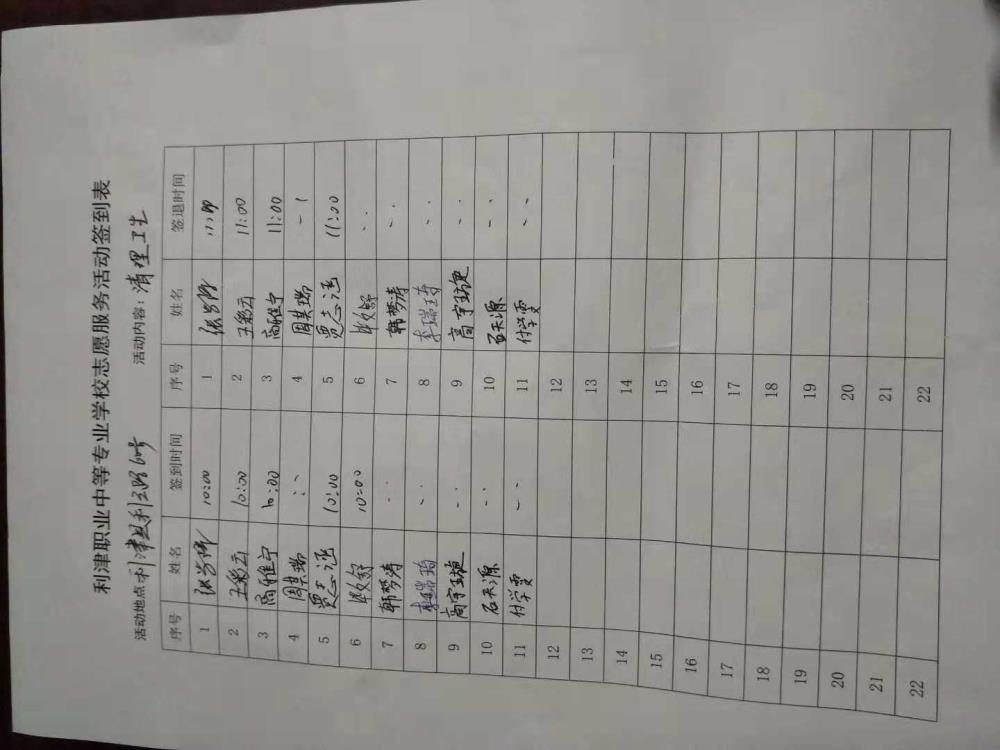 利津职业中等专业学校志愿服务活动签到表
活动地点 利津县利三路60号 活动内容：清理卫生
序号 姓名 签到时间 序号 姓名 签退时间
1 10:00 1
2 王彩云 10:00 2 王彩云 11:00
3 高雅宁 10:00 3 高雅宁 11:00
4 周其瑞 4 周其瑞
5 贾志涵 10:00 5 贾志涵 11:00
6 10:00 6
7 韩梦涛 7 韩梦涛
8 李瑞琦 8 李瑞琦
9 高宇璇 9 高宇璇
10 石天源 10 石天源
11 付学雯 11 付学雯
12 12
13 13
14 14
15 15
16 16
17 17
18 18
19 19
20 20
21 21
22 22